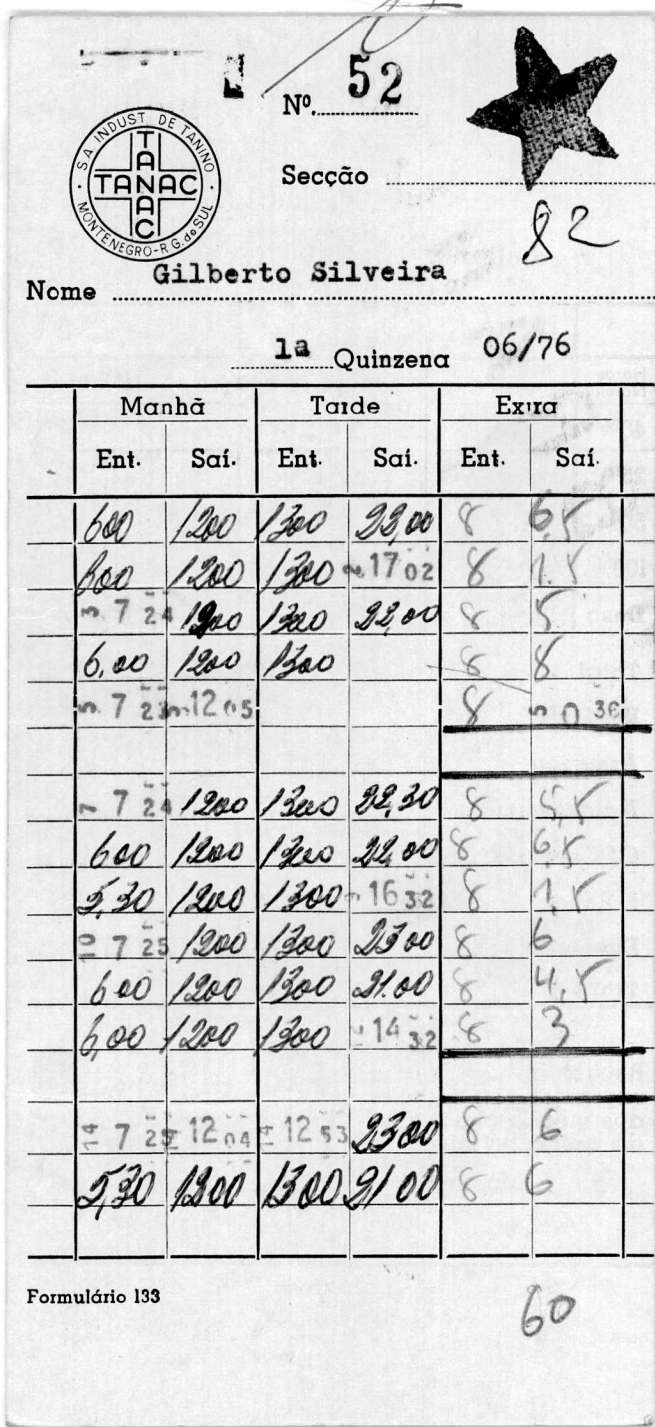 Nº 52
S.A INDUST. DE TANINO
TANAC
TANAC
MONTENEGRO-R G. do SUL
Secção
82
Nome Gilberto Silveira
1a Quinzena 06/76
Manhã Tarde Extra
Ent. Saí. Ent. Saí. Ent. Saí.
600 1200 1300 22,00 8 6,5
600 1200 1300 2 17 02 8 1.5
3 7 24 1200 1300 22,00 8 5
6,00 1200 1300 8 8
5 7 23 5 12 05 8 5 0 36
7 7 24 1200 1300 22,30 8 5,5
600 1200 1300 22,00 8 6,5
5,30 1200 1300 16 32 8 1,5
10 7 25 1200 1300 2300 8 6
600 1200 1300 21.00 8 4,5
6,00 1200 1300 14 32 8 3
14 7 25 14 12 04 14 12 53 2300 8 6
5,30 1200 1300 21 00 8 6
Formulário 133
60